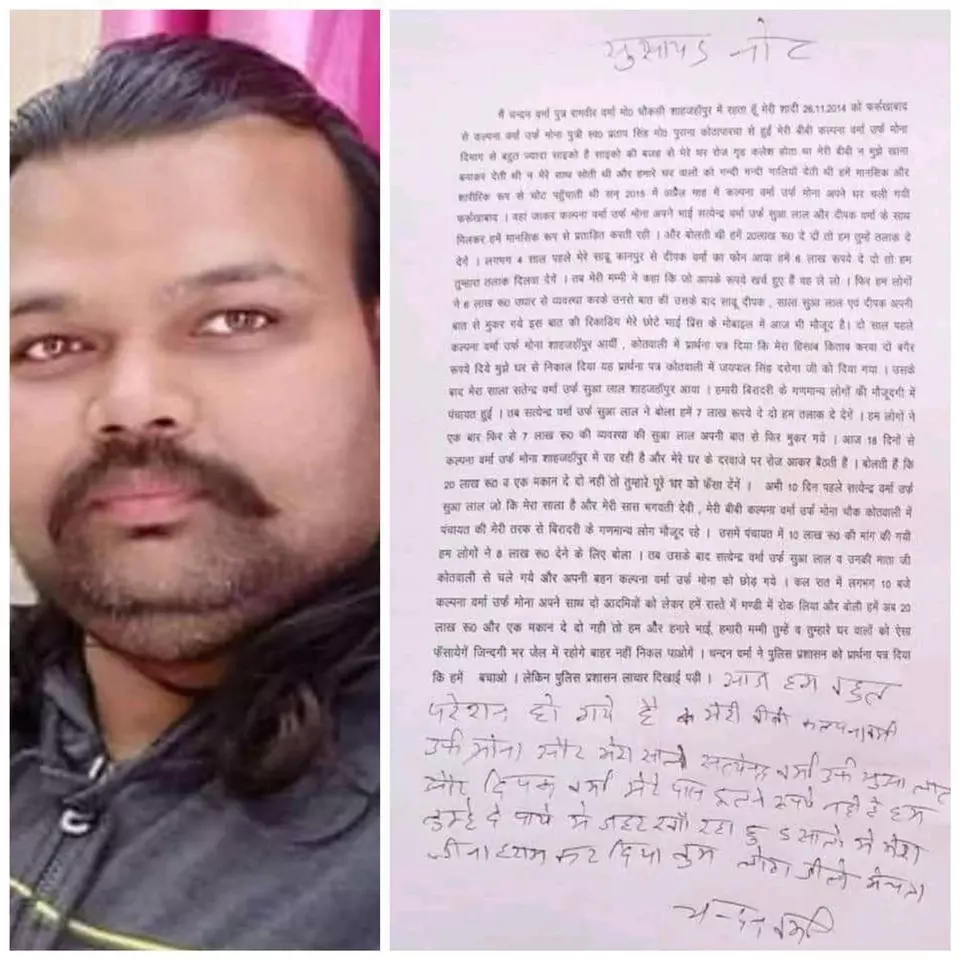 सुसायड नोट
मैं चन्दन वर्मा पुत्र रामवीर वर्मा मो० चौकसी शाहजहाँपुर में रहता हूँ मेरी शादी 26.11.2014 को फर्रुखाबाद
से कल्पना वर्मा उर्फ मोना पुत्री स्व० प्रताप सिंह मो० पुराना कोठापारचा से हुई मेरी बीबी कल्पना वर्मा उर्फ मोना
दिमाग से बहुत ज्यादा साइको है साइको की बजह से मेरे घर रोज गृह कलेश होता था मेरी बीबी न मुझे खाना
बनाकर देती थी न मेरे साथ सोती थी और हमारे घर वालों को गन्दी गन्दी गालियाँ देती थी हमें मानसिक और
शारीरिक रूप से चोट पहुँचाती थी सन् 2015 में अप्रैल माह में कल्पना वर्मा उर्फ मोना अपने घर चली गयी
फर्रुखाबाद । वहां जाकर कल्पना वर्मा उर्फ मोना अपने भाई सत्येन्द्र वर्मा उर्फ सुआ लाल और दीपक वर्मा के साथ
मिलकर हमें मानसिक रूप से प्रताडित करती रही । और बोलती थी हमें 20लाख रू0 दे दो तो हम तुम्हें तलाक दे
देंगें । लगभग 4 साल पहले मेरे साढू कानपुर से दीपक वर्मा का फोन आया हमें 6 लाख रूपये दे दो तो हम
तुम्हारा तलाक दिलवा देंगें । तब मेरी मम्मी ने कहा कि जो आपके रूपये खर्च हुए हैं वह ले लो । फिर हम लोगों
ने 6 लाख रू0 उधार से व्यवस्था करके उनसे बात की उसके बाद साढू दीपक , साला सुआ लाल एवं दीपक अपनी
बात से मुकर गये इस बात की रिकाडिंग मेरे छोटे भाई प्रिंस के मोबाइल में आज भी मौजूद है। दो साल पहले
कल्पना वर्मा उर्फ मोना शाहजहाँपुर आयीं , कोतवाली में प्रार्थना पत्र दिया कि मेरा हिसाब किताब करवा दो बगैर
रूपये दिये मुझे घर से निकाल दिया यह प्रार्थना पत्र कोतवाली में जयपाल सिंह दरोगा जी को दिया गया । उसके
बाद मेरा साला सतेन्द्र वर्मा उर्फ सुआ लाल शाहजहाँपुर आया । हमारी बिरादरी के गणमान्य लोगों की मौजूदगी में
पंचायत हुई । तब सत्येन्द्र वर्मा उर्फ सुआ लाल ने बोला हमें 7 लाख रूपये दे दो हम तलाक दे देगें । हम लोगों ने
एक बार फिर से 7 लाख रू0 की व्यवस्था की सुआ लाल अपनी बात से फिर मुकर गये । आज 18 दिनों से
कल्पना वर्मा उर्फ मोना शाहजहाँपुर में रह रही है और मेरे घर के दरवाजे पर रोज आकर बैठती है । बोलती हैं कि
20 लाख रू0 व एक मकान दे दो नही तो तुम्हारे पूरे घर को फँसा देंगें । अभी 10 दिन पहले सत्येन्द्र वर्मा उर्फ
सुआ लाल जो कि मेरा साला है और मेरी सास भगवती देवी , मेरी बीबी कल्पना वर्मा उर्फ मोना चौक कोतवाली में
पंचायत की मेरी तरफ से बिरादरी के गणमान्य लोग मौजूद रहे । उसमें पंचायत में 10 लाख रू0 की मांग की गयी
हम लोगों ने 8 लाख रू0 देने के लिए बोला । तब उसके बाद सत्येन्द्र वर्मा उर्फ सुआ लाल व उनकी माता जी
कोतवाली से चले गये और अपनी बहन कल्पना वर्मा उर्फ मोना को छोड़ गये । कल रात में लगभग 10 बजे
कल्पना वर्मा उर्फ मोना अपने साथ दो आदमियों को लेकर हमें रास्ते में मण्डी में रोक लिया और बोली हमें अब 20
लाख रू0 और एक मकान दे दो नही तो हम और हमारे भाई, हमारी मम्मी तुम्हें व तुम्हारे घर वालों को ऐसा
फँसायेगें जिन्दगी भर जेल में रहोगे बाहर नहीं निकल पाओगें । चन्दन वर्मा ने पुलिस प्रशासन को प्रार्थना पत्र दिया
कि हमें बचाओ । लेकिन पुलिस प्रशासन लाचार दिखाई पड़ी । आज हम बहुत
परेशान हो गये है मेरी बीबी कल्पना वर्मा
उर्फ मोना और मेरा साले सत्येन्द्र वर्मा उर्फ सुआ लाल
और दिपक वर्मा मेरे पास इतने रुपये नही है हम
तुम्हे दे पाये मे जहर खा रहा हु सालो ने मेरा
जीना कर दिया तुम लोग
चन्दन वर्मा